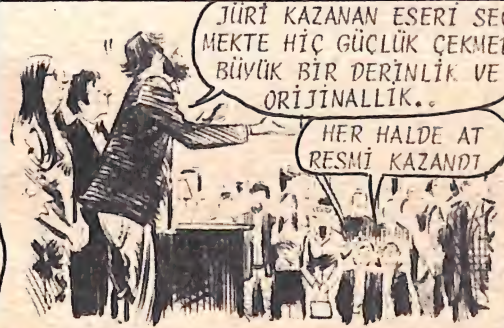 JÜRİ KAZANAN ESERİ SEÇ
MEKTE HİÇ GÜÇLÜK ÇEKMEDİ
BÜYÜK BİR DERİNLİK VE
ORİJİNALLİK..
HER HALDE AT
RESMİ KAZANDI